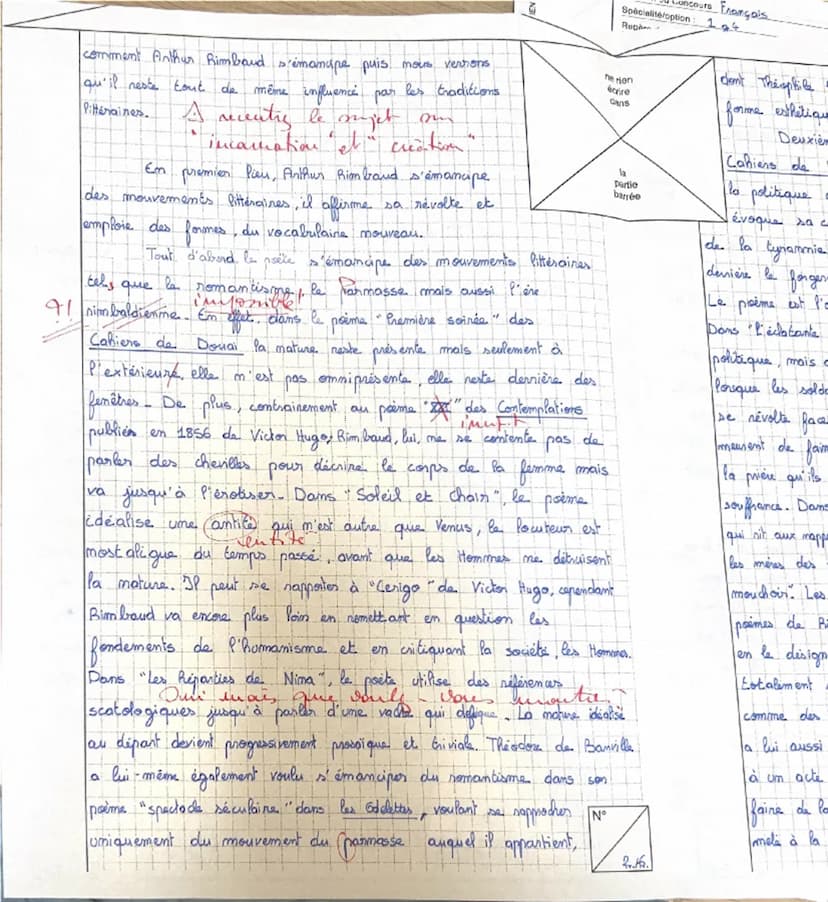 Concours Français
Spécialité/option : 1
Repère
ne rien
écrire
dans
la
partie
barrée
comment Arthur Rimbaud s'émancipe puis nous verrons
qu'il reste tout de même influencé par les traditions
littéraires. A recentrez le sujet sur
"incarnation" et "création"
En premier lieu, Arthur Rimbaud s'émancipe
des mouvements littéraires, il affirme sa révolte et
emploie des formes, du vocabulaire nouveau.
Tout d'abord le poète s'émancipe des mouvements littéraires
tels que le romantisme, le Parnasse mais aussi l'ère
impossible!
rimbaldienne. En effet, dans le poème "Première soirée" des
Cahiers de Douai la nature reste présente mais seulement à
l'extérieure, elle n'est pas omniprésente, elle reste derrière des
fenêtres. De plus, contrairement au poème "XXI" des Contemplations
publiés en 1856 de Victor Hugo, Rimbaud, lui, ne se contente pas de
parler des chevilles pour décrire le corps de la femme mais
va jusqu'à l'érotiser. Dans "Soleil et Chair", le poème
idéalise une antité qui n'est autre que Venus, le locuteur est
entité
nostalgique du temps passé, avant que les Hommes ne détruisent
la nature. Il peut se rapporter à "Cerigo" de Victor Hugo, cependant
Rimbaud va encore plus loin en remettant en question les
fondements de l'humanisme et en critiquant la société, les Hommes.
Dans "Les Réparties de Nina", le poète utilise des références
Oui mais que voulez-vous montrer
scatologiques jusqu'à parler d'une vache qui défèque. La nature idéalisé
au départ devient progressivement prosaïque et triviale. Théodore de Banville
a lui-même également voulu s'émanciper du romantisme dans son
poème "spectacle séculaire" dans les Odelettes, voulant se rapprocher
uniquement du mouvement du parnasse auquel il appartient,
N°
2./4.
dont Théophile
forme esthétique
Deuxièm
Cahiers de
la politique
évoque sa c
de la tyrannie
derrière le forgeron
Le poème est l'
Dans "L'éclatante
politique, mais
lorsque les solda
se révolte face
meurent de faim
la prière qu'ils
souffrance. Dans
qui rit aux napp
les mères des
mouchoir". Les
poèmes de Ri
en le désign
totalement
comme des
a lui aussi
à un acte
faire de la
melé à la